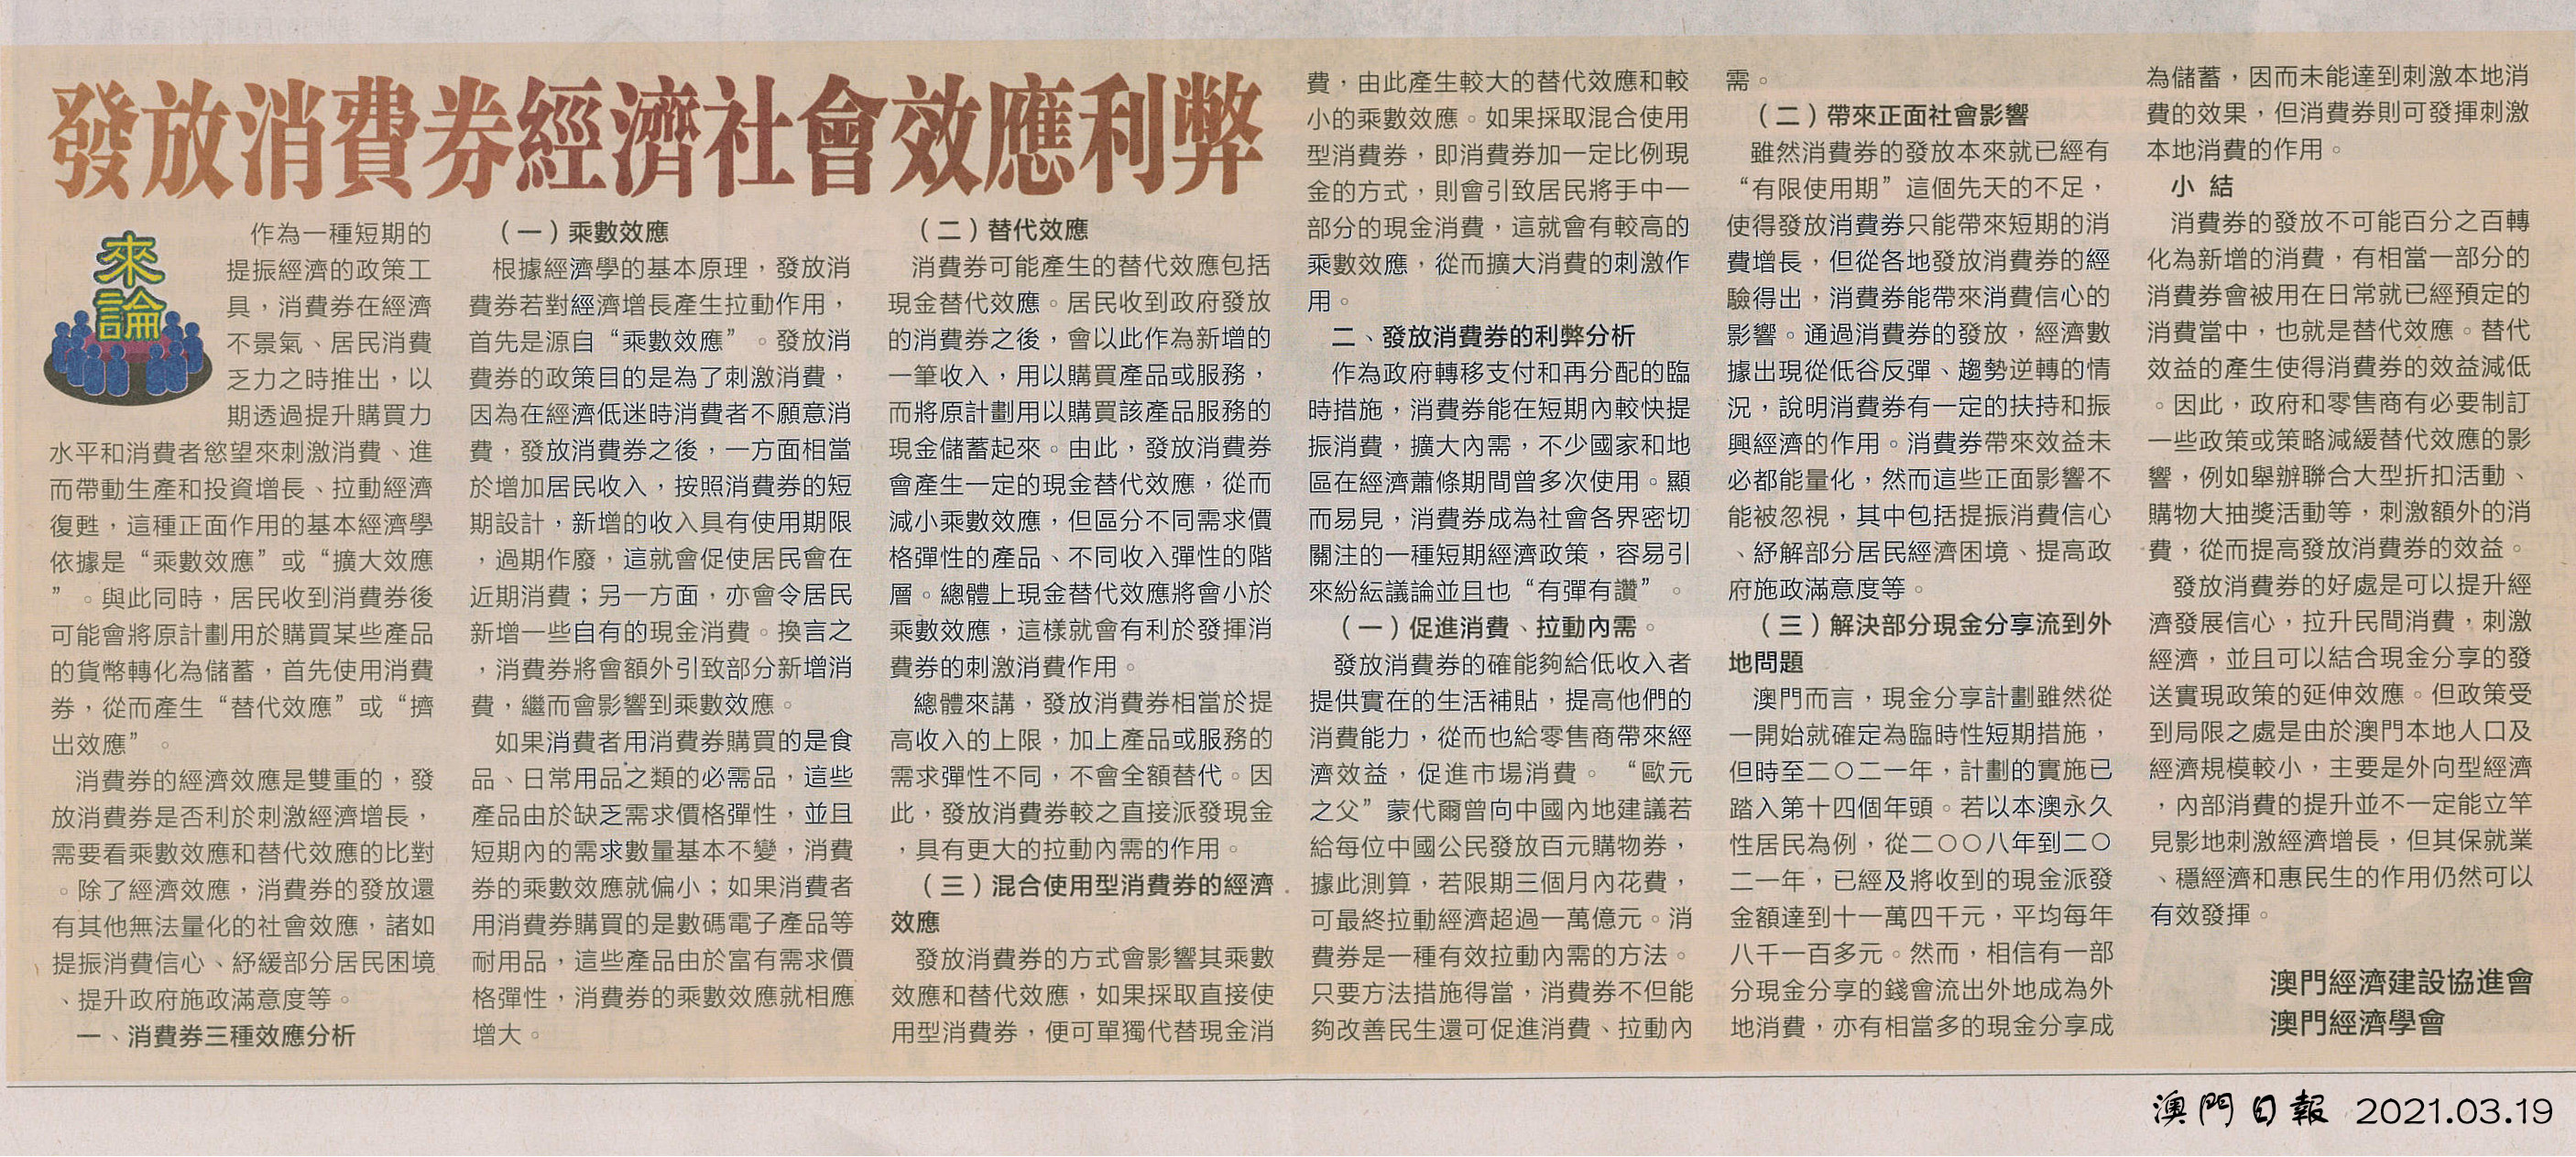 發放消費券經濟社會效應利弊
來
論
作為一種短期的
提振經濟的政策工
具，消費券在經濟
不景氣、居民消費
乏力之時推出，以
期透過提升購買力
水平和消費者慾望來刺激消費、進
而帶動生產和投資增長、拉動經濟
復甦，這種正面作用的基本經濟學
依據是“乘數效應”或“擴大效應
”。與此同時，居民收到消費券後
可能會將原計劃用於購買某些產品
的貨幣轉化為儲蓄，首先使用消費
券，從而產生“替代效應”或“擠
出效應”。
消費券的經濟效應是雙重的，發
放消費券是否利於刺激經濟增長，
需要看乘數效應和替代效應的比對
。除了經濟效應，消費券的發放還
有其他無法量化的社會效應，諸如
提振消費信心、紓緩部分居民困境
、提升政府施政滿意度等。
一、消費券三種效應分析
（一）乘數效應
根據經濟學的基本原理，發放消
費券若對經濟增長產生拉動作用，
首先是源自“乘數效應”。發放消
費券的政策目的是為了刺激消費，
因為在經濟低迷時消費者不願意消
費，發放消費券之後，一方面相當
於增加居民收入，按照消費券的短
期設計，新增的收入具有使用期限
，過期作廢，這就會促使居民會在
近期消費；另一方面，亦會令居民
新增一些自有的現金消費。換言之
，消費券將會額外引致部分新增消
費，繼而會影響到乘數效應。
如果消費者用消費券購買的是食
品、日常用品之類的必需品，這些
產品由於缺乏需求價格彈性，並且
短期內的需求數量基本不變，消費
券的乘數效應就偏小；如果消費者
用消費券購買的是數碼電子產品等
耐用品，這些產品由於富有需求價
格彈性，消費券的乘數效應就相應
增大。
（二）替代效應
消費券可能產生的替代效應包括
現金替代效應。居民收到政府發放
的消費券之後，會以此作為新增的
一筆收入，用以購買產品或服務，
而將原計劃用以購買該產品服務的
現金儲蓄起來。由此，發放消費券
會產生一定的現金替代效應，從而
減小乘數效應，但區分不同需求價
格彈性的產品、不同收入彈性的階
層。總體上現金替代效應將會小於
乘數效應，這樣就會有利於發揮消
費券的刺激消費作用。
總體來講，發放消費券相當於提
高收入的上限，加上產品或服務的
需求彈性不同，不會全額替代。因
此，發放消費券較之直接派發現金
，具有更大的拉動內需的作用。
（三）混合使用型消費券的經濟
效應
發放消費券的方式會影響其乘數
效應和替代效應，如果採取直接使
用型消費券，便可單獨代替現金消
費，由此產生較大的替代效應和較
小的乘數效應。如果採取混合使用
型消費券，即消費券加一定比例現
金的方式，則會引致居民將手中一
部分的現金消費，這就會有較高的
乘數效應，從而擴大消費的刺激作
用。
二、發放消費券的利弊分析
作為政府轉移支付和再分配的臨
時措施，消費券能在短期內較快提
振消費，擴大內需，不少國家和地
區在經濟蕭條期間曾多次使用。顯
而易見，消費券成為社會各界密切
關注的一種短期經濟政策，容易引
來紛紜議論並且也“有彈有讚”。
（一）促進消費、拉動內需。
發放消費券的確能夠給低收入者
提供實在的生活補貼，提高他們的
消費能力，從而也給零售商帶來經
濟效益，促進市場消費。“歐元
之父”蒙代爾曾向中國內地建議若
給每位中國公民發放百元購物券，
據此測算，若限期三個月內花費，
可最終拉動經濟超過一萬億元。消
費券是一種有效拉動內需的方法。
只要方法措施得當，消費券不但能
夠改善民生還可促進消費、拉動內
需。
（二）帶來正面社會影響
雖然消費券的發放本來就已經有
“有限使用期”這個先天的不足，
使得發放消費券只能帶來短期的消
費增長，但從各地發放消費券的經
驗得出，消費券能帶來消費信心的
影響。通過消費券的發放，經濟數
據出現從低谷反彈、趨勢逆轉的情
況，說明消費券有一定的扶持和振
興經濟的作用。消費券帶來效益未
必都能量化，然而這些正面影響不
能被忽視，其中包括提振消費信心
、紓解部分居民經濟困境、提高政
府施政滿意度等。
（三）解決部分現金分享流到外
地問題
澳門而言，現金分享計劃雖然從
一開始就確定為臨時性短期措施，
但時至二〇二一年，計劃的實施已
踏入第十四個年頭。若以本澳永久
性居民為例，從二〇〇八年到二〇
二一年，已經及將收到的現金派發
金額達到十一萬四千元，平均每年
八千一百多元。然而，相信有一部
分現金分享的錢會流出外地成為外
地消費，亦有相當多的現金分享成
為儲蓄，因而未能達到刺激本地消
費的效果，但消費券則可發揮刺激
本地消費的作用。
小 結
消費券的發放不可能百分之百轉
化為新增的消費，有相當一部分的
消費券會被用在日常就已經預定的
消費當中，也就是替代效應。替代
效益的產生使得消費券的效益減低
。因此，政府和零售商有必要制訂
一些政策或策略減緩替代效應的影
響，例如舉辦聯合大型折扣活動、
購物大抽獎活動等，刺激額外的消
費，從而提高發放消費券的效益。
發放消費券的好處是可以提升經
濟發展信心，拉升民間消費，刺激
經濟，並且可以結合現金分享的發
送實現政策的延伸效應。但政策受
到局限之處是由於澳門本地人口及
經濟規模較小，主要是外向型經濟
，內部消費的提升並不一定能立竿
見影地刺激經濟增長，但其保就業
、穩經濟和惠民生的作用仍然可以
有效發揮。
澳門經濟建設協進會
澳門經濟學會
澳門日報 2021.03.19